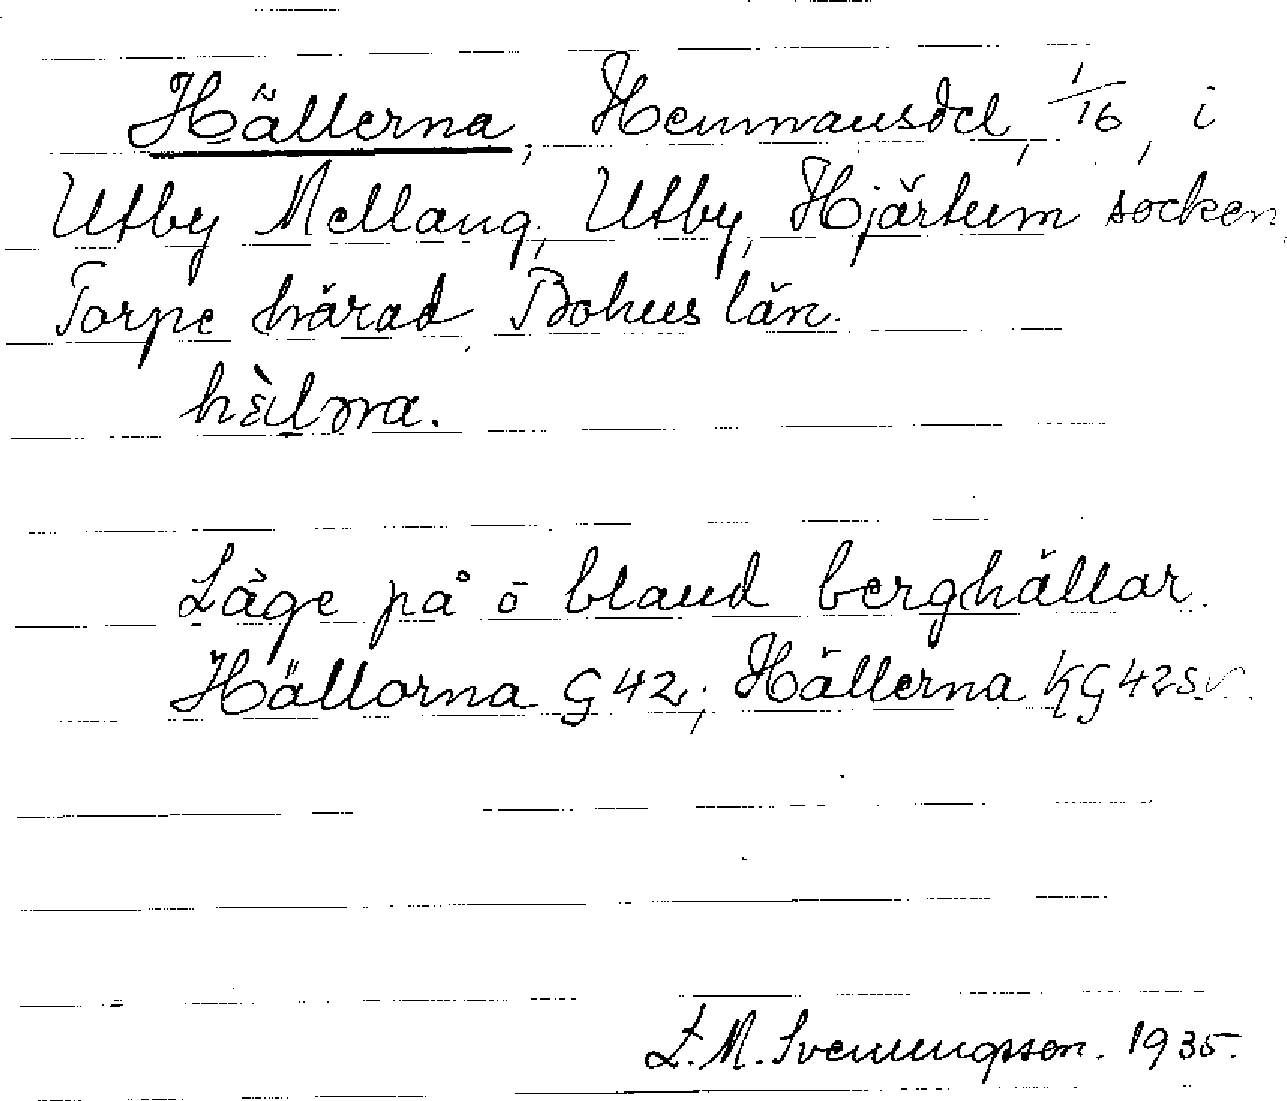 Hällerna, Hemmansdel, 1/16, i
Utby Mellang, Utby, Hjärtum socken,
Torpe härad, Bohus län.
Läge på ö bland berghällar.
Hällorna G 42; Hällerna KG 42 sv.
L. M. Svenungsson. 1935.